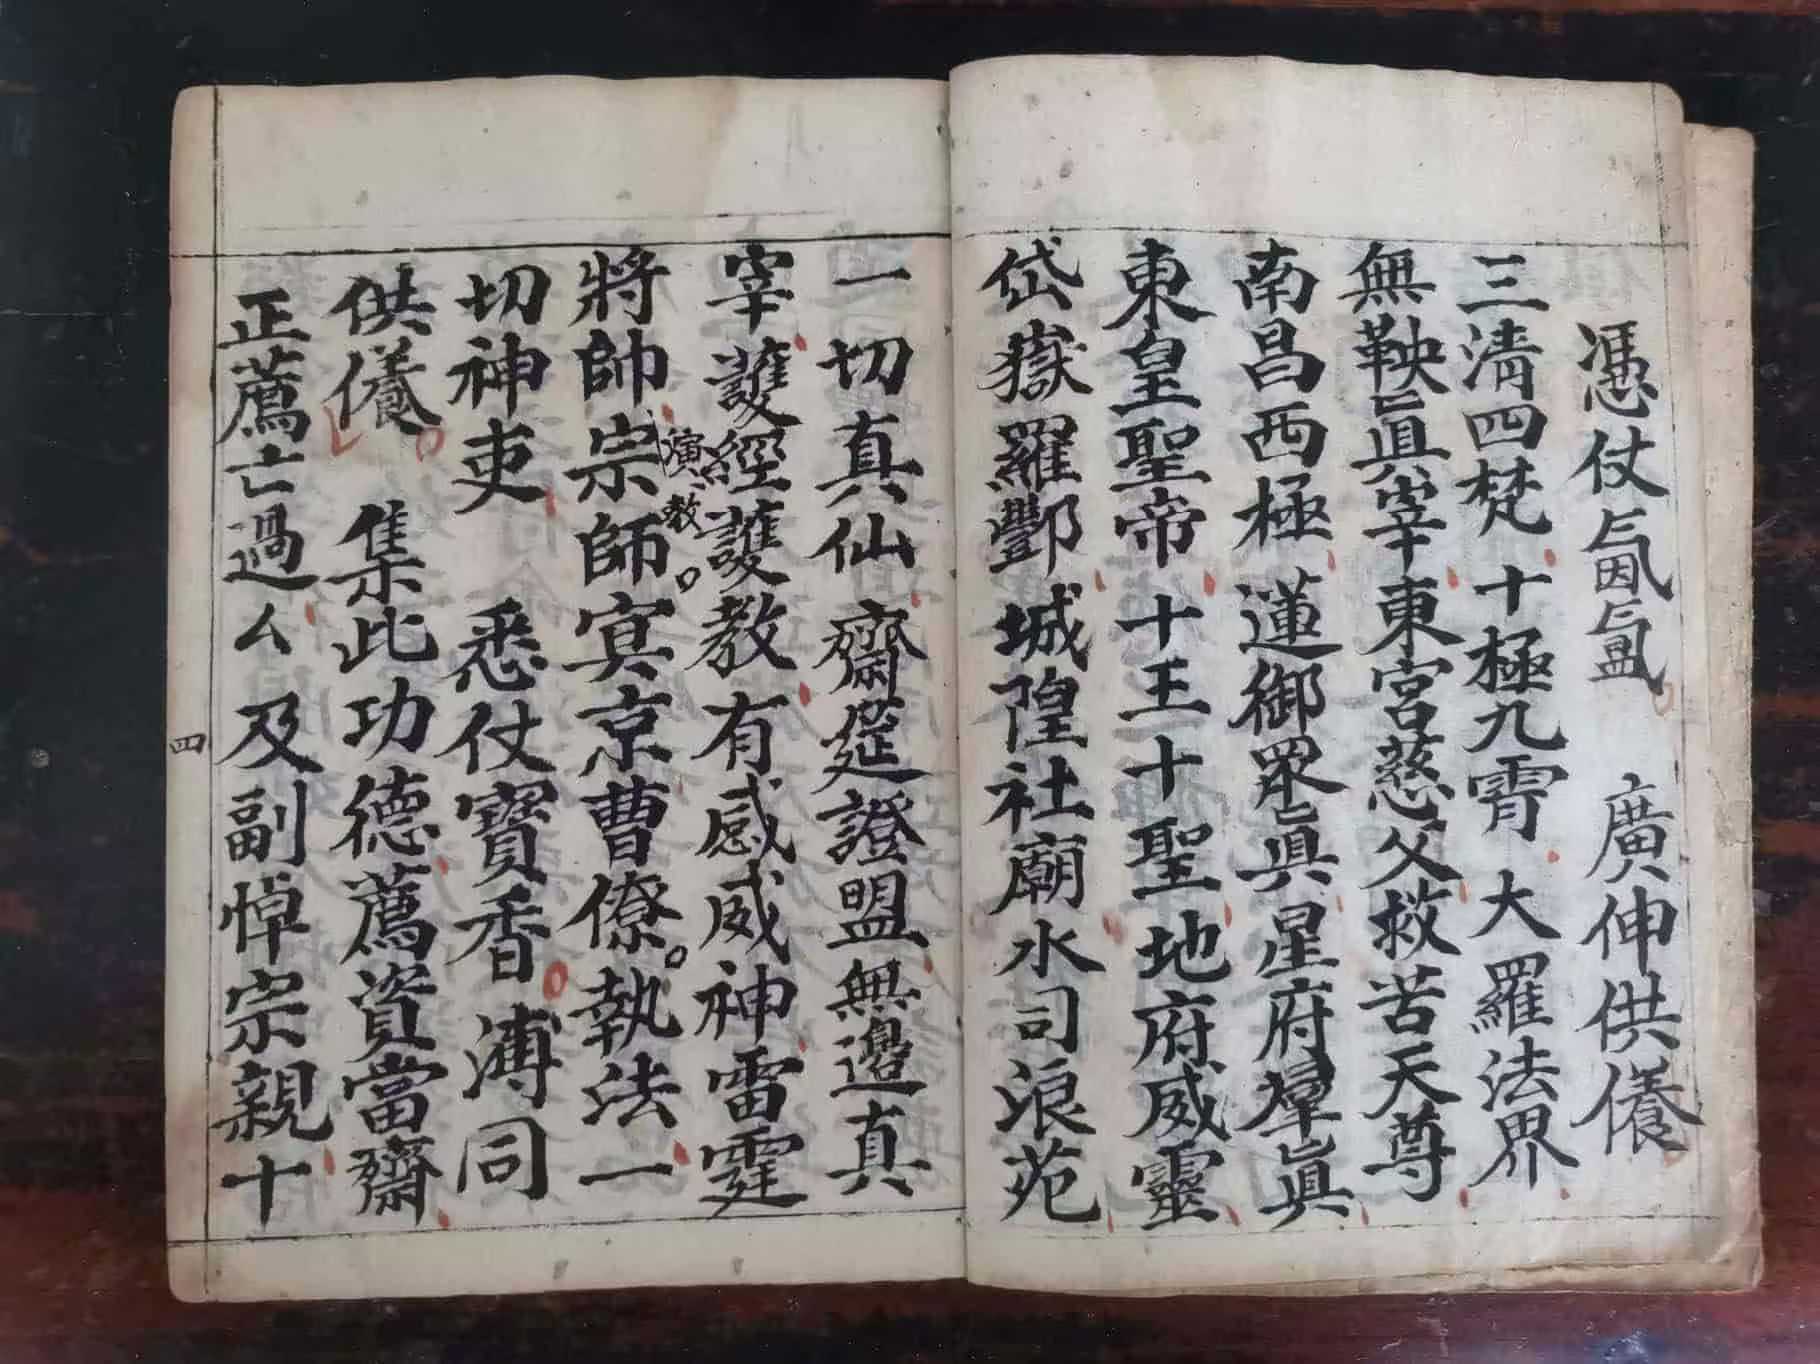 憑仗氤氳 廣伸供養
三清四梵十極九霄大羅法界
無鞅眞宰東宮慈父救苦天尊
南昌西極蓮御眾眞星府羣眞
東皇聖帝十王十聖地府威靈
岱嶽羅酆城隍社廟水司浪苑
一切真仙齋筵證盟無邊真
宰護經護教有感威神雷霆
將帥宗師冥京曹僚執法一
演教
切神吏 悉仗寶香 溥同
供養 集此功德薦資當齋
正薦亡過厶及副悼宗親十
四